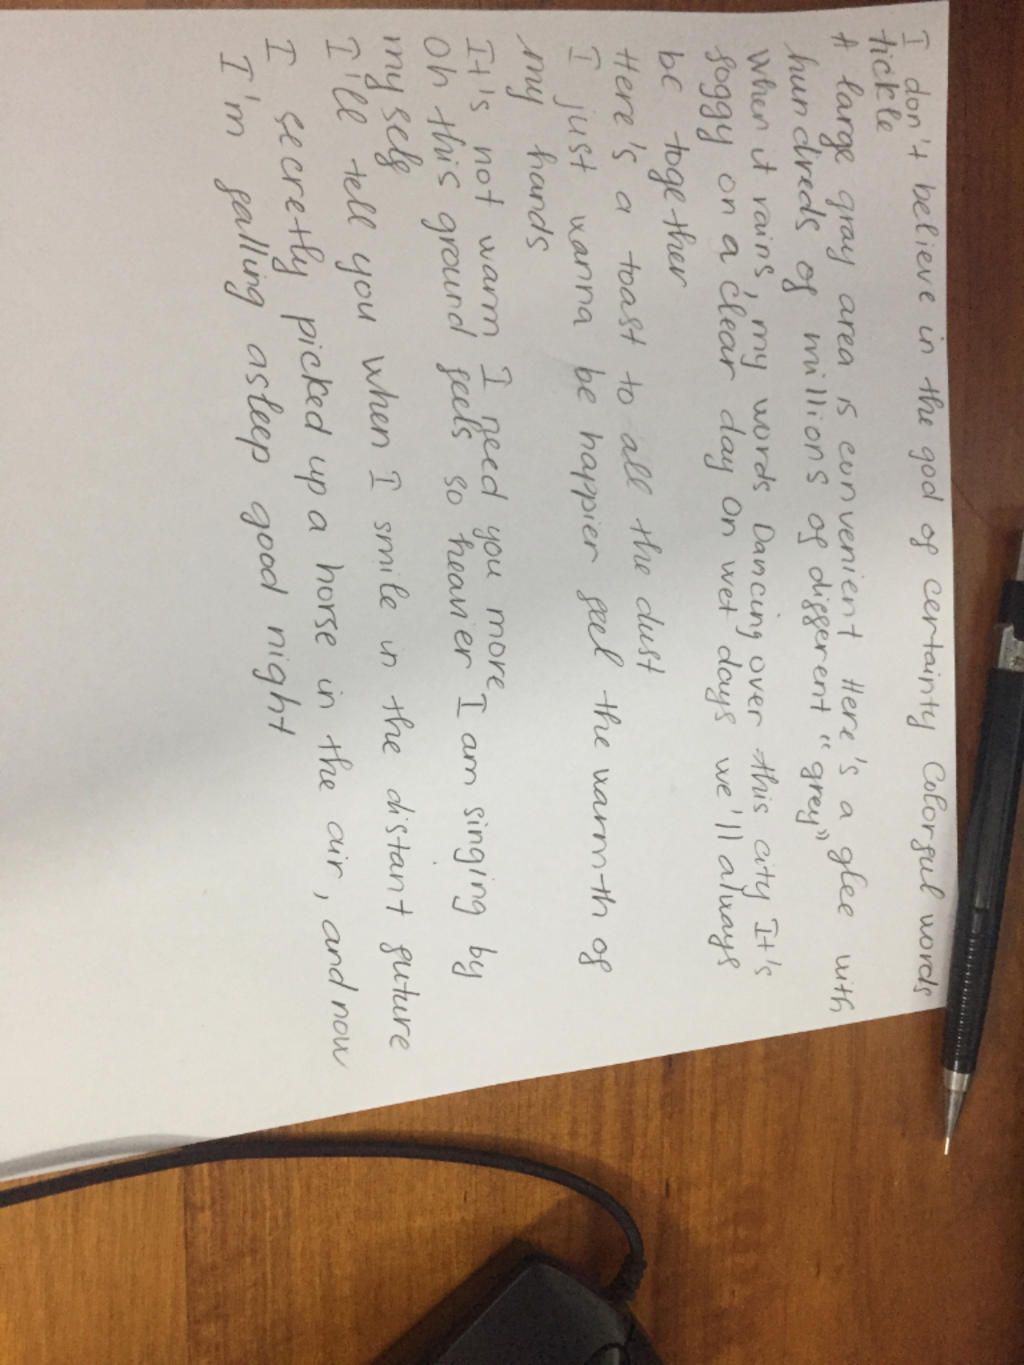 I don't believe in the god of certainty Colorful words
tickle
A large gray area is convenient Here's a glee with
hundreds of millions of different "grey"
When it rains, my words Dancing over this city It's
foggy on a clear day On wet days we'll always
be together
Here's a toast to all the dust
I just wanna be happier feel the warmth of
my hands
It's not warm I need you more
Oh this ground feels so heavier I am singing by
myself
I'll tell you when I smile in the distant future
I secretly picked up a horse in the air, and now
I'm falling asleep good night